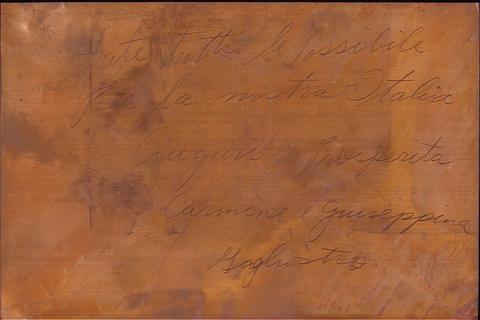 Fate tutti le Possibile
per la nostra Italia
Auguri Prosperita
Carmine e Giuseppina